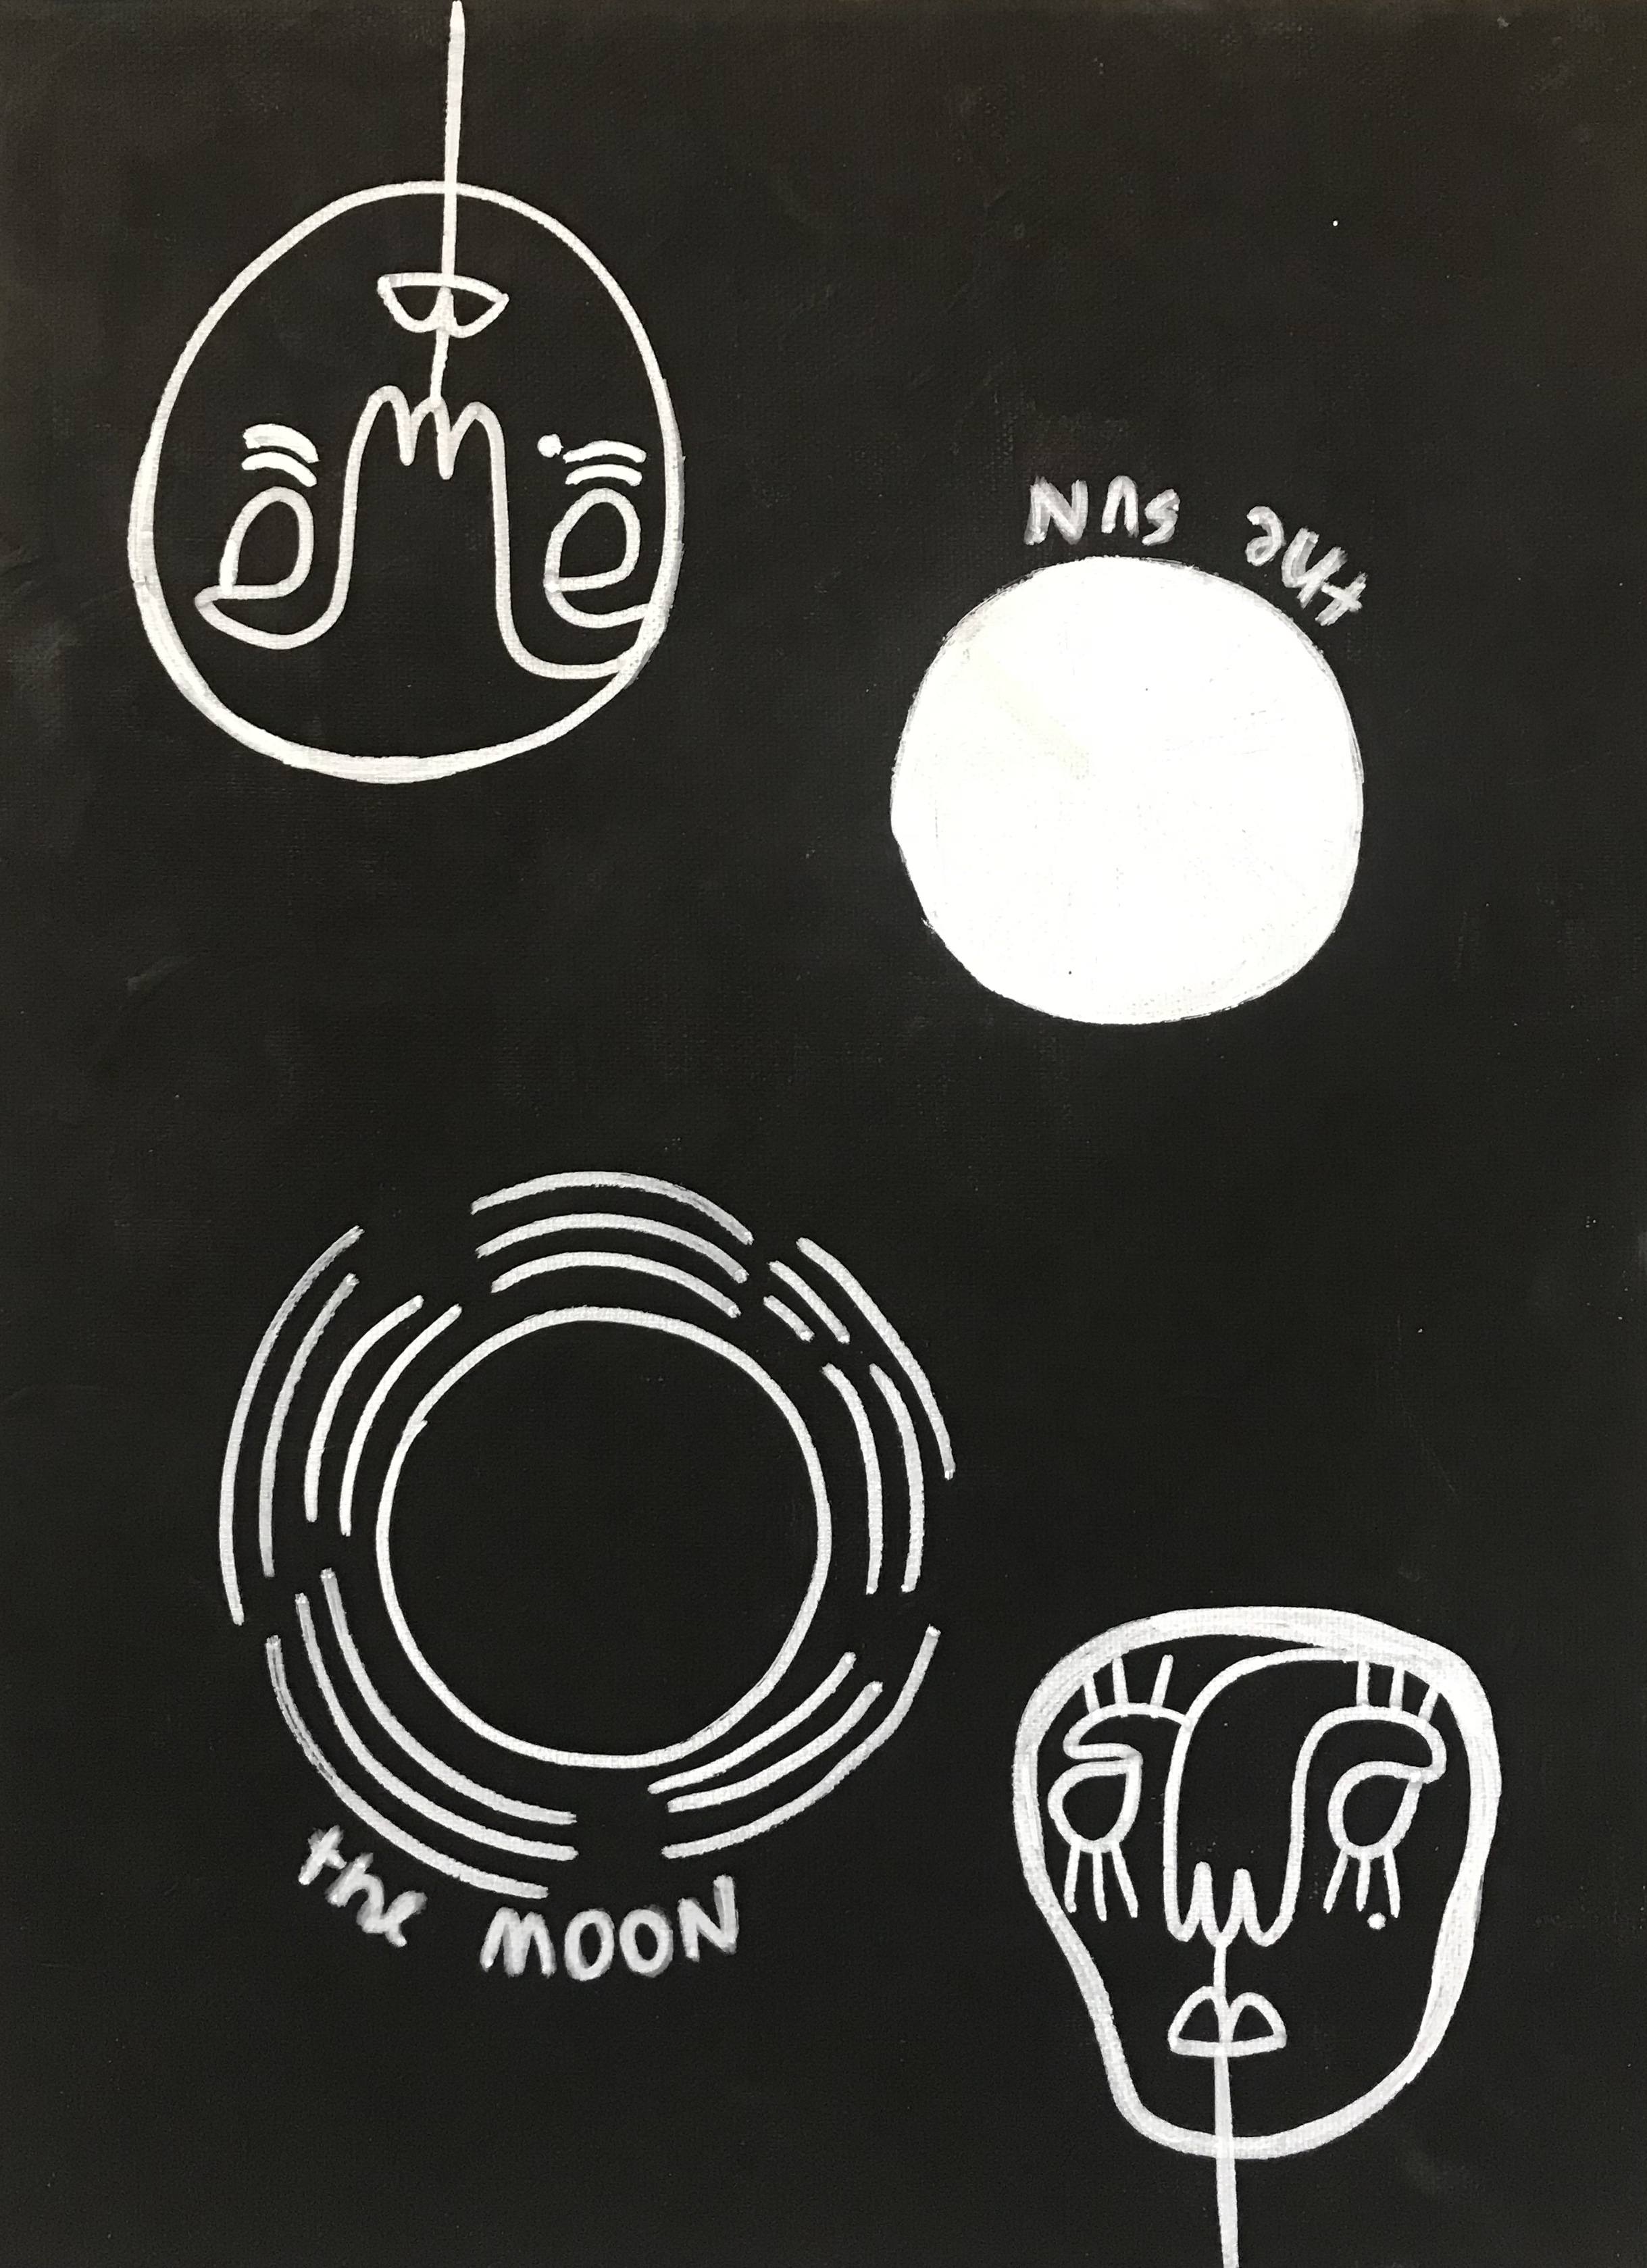 the SUN
the MOON